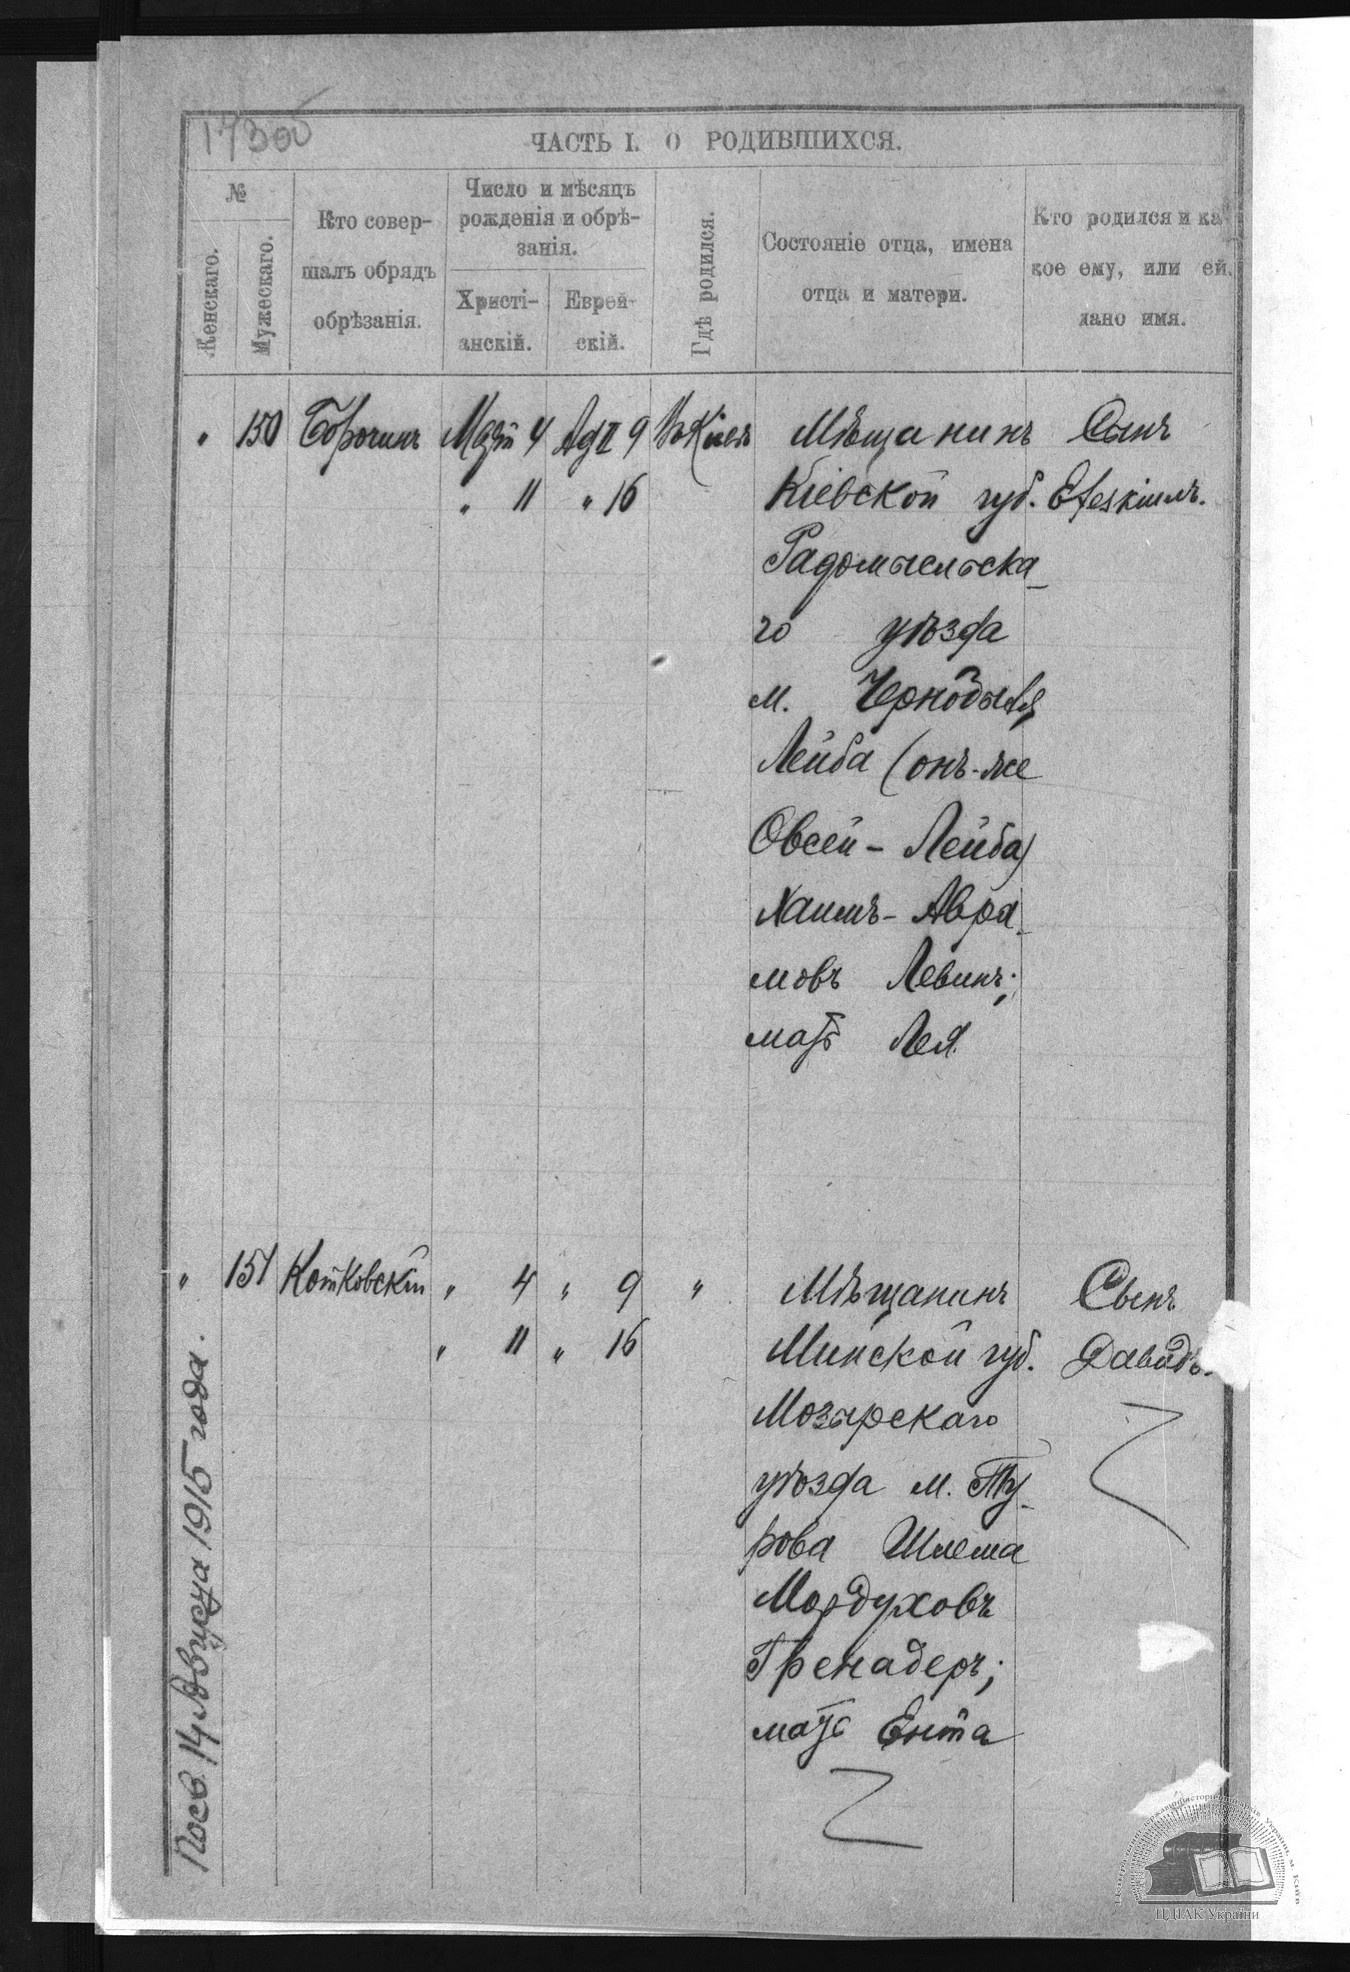 1730об
ЧАСТЬ I. О РОДИВШИХСЯ.
№
Женскаго.
Мужескаго.
Кто совер-
шалъ обрядъ
обрѣзанія.
Число и мѣсяцъ
рожденія и обрѣ-
занія.
Христі-
анскій.
Еврей-
скій.
Гдѣ родился.
Состояніе отца, имена
отца и матери.
Кто родился и ка-
кое ему, или ей,
дано имя.
" 150 Борочинъ Март 4 Ад II 9 Въ Кіевѣ Мѣщанинъ Сынъ
" 11 " 16 Кіевской губ.
Радомысльска-
го уѣзда
м. Чернобыля,
Лейба (онъ-же
Овсей - Лейба)
Хаимъ - Авра-
мовъ Левинъ;
мать Лея.
" 151 Котковскій " 4 " 9 " Мѣщанинъ Сынъ
" 11 " 16 Минской губ. Давидъ.
Мозырскаго
уѣзда м. Ту-
рова Шлема
Мордуховъ
Гренадеръ;
мать Ента
14 Августа 1915 года.
ЦДІАК України